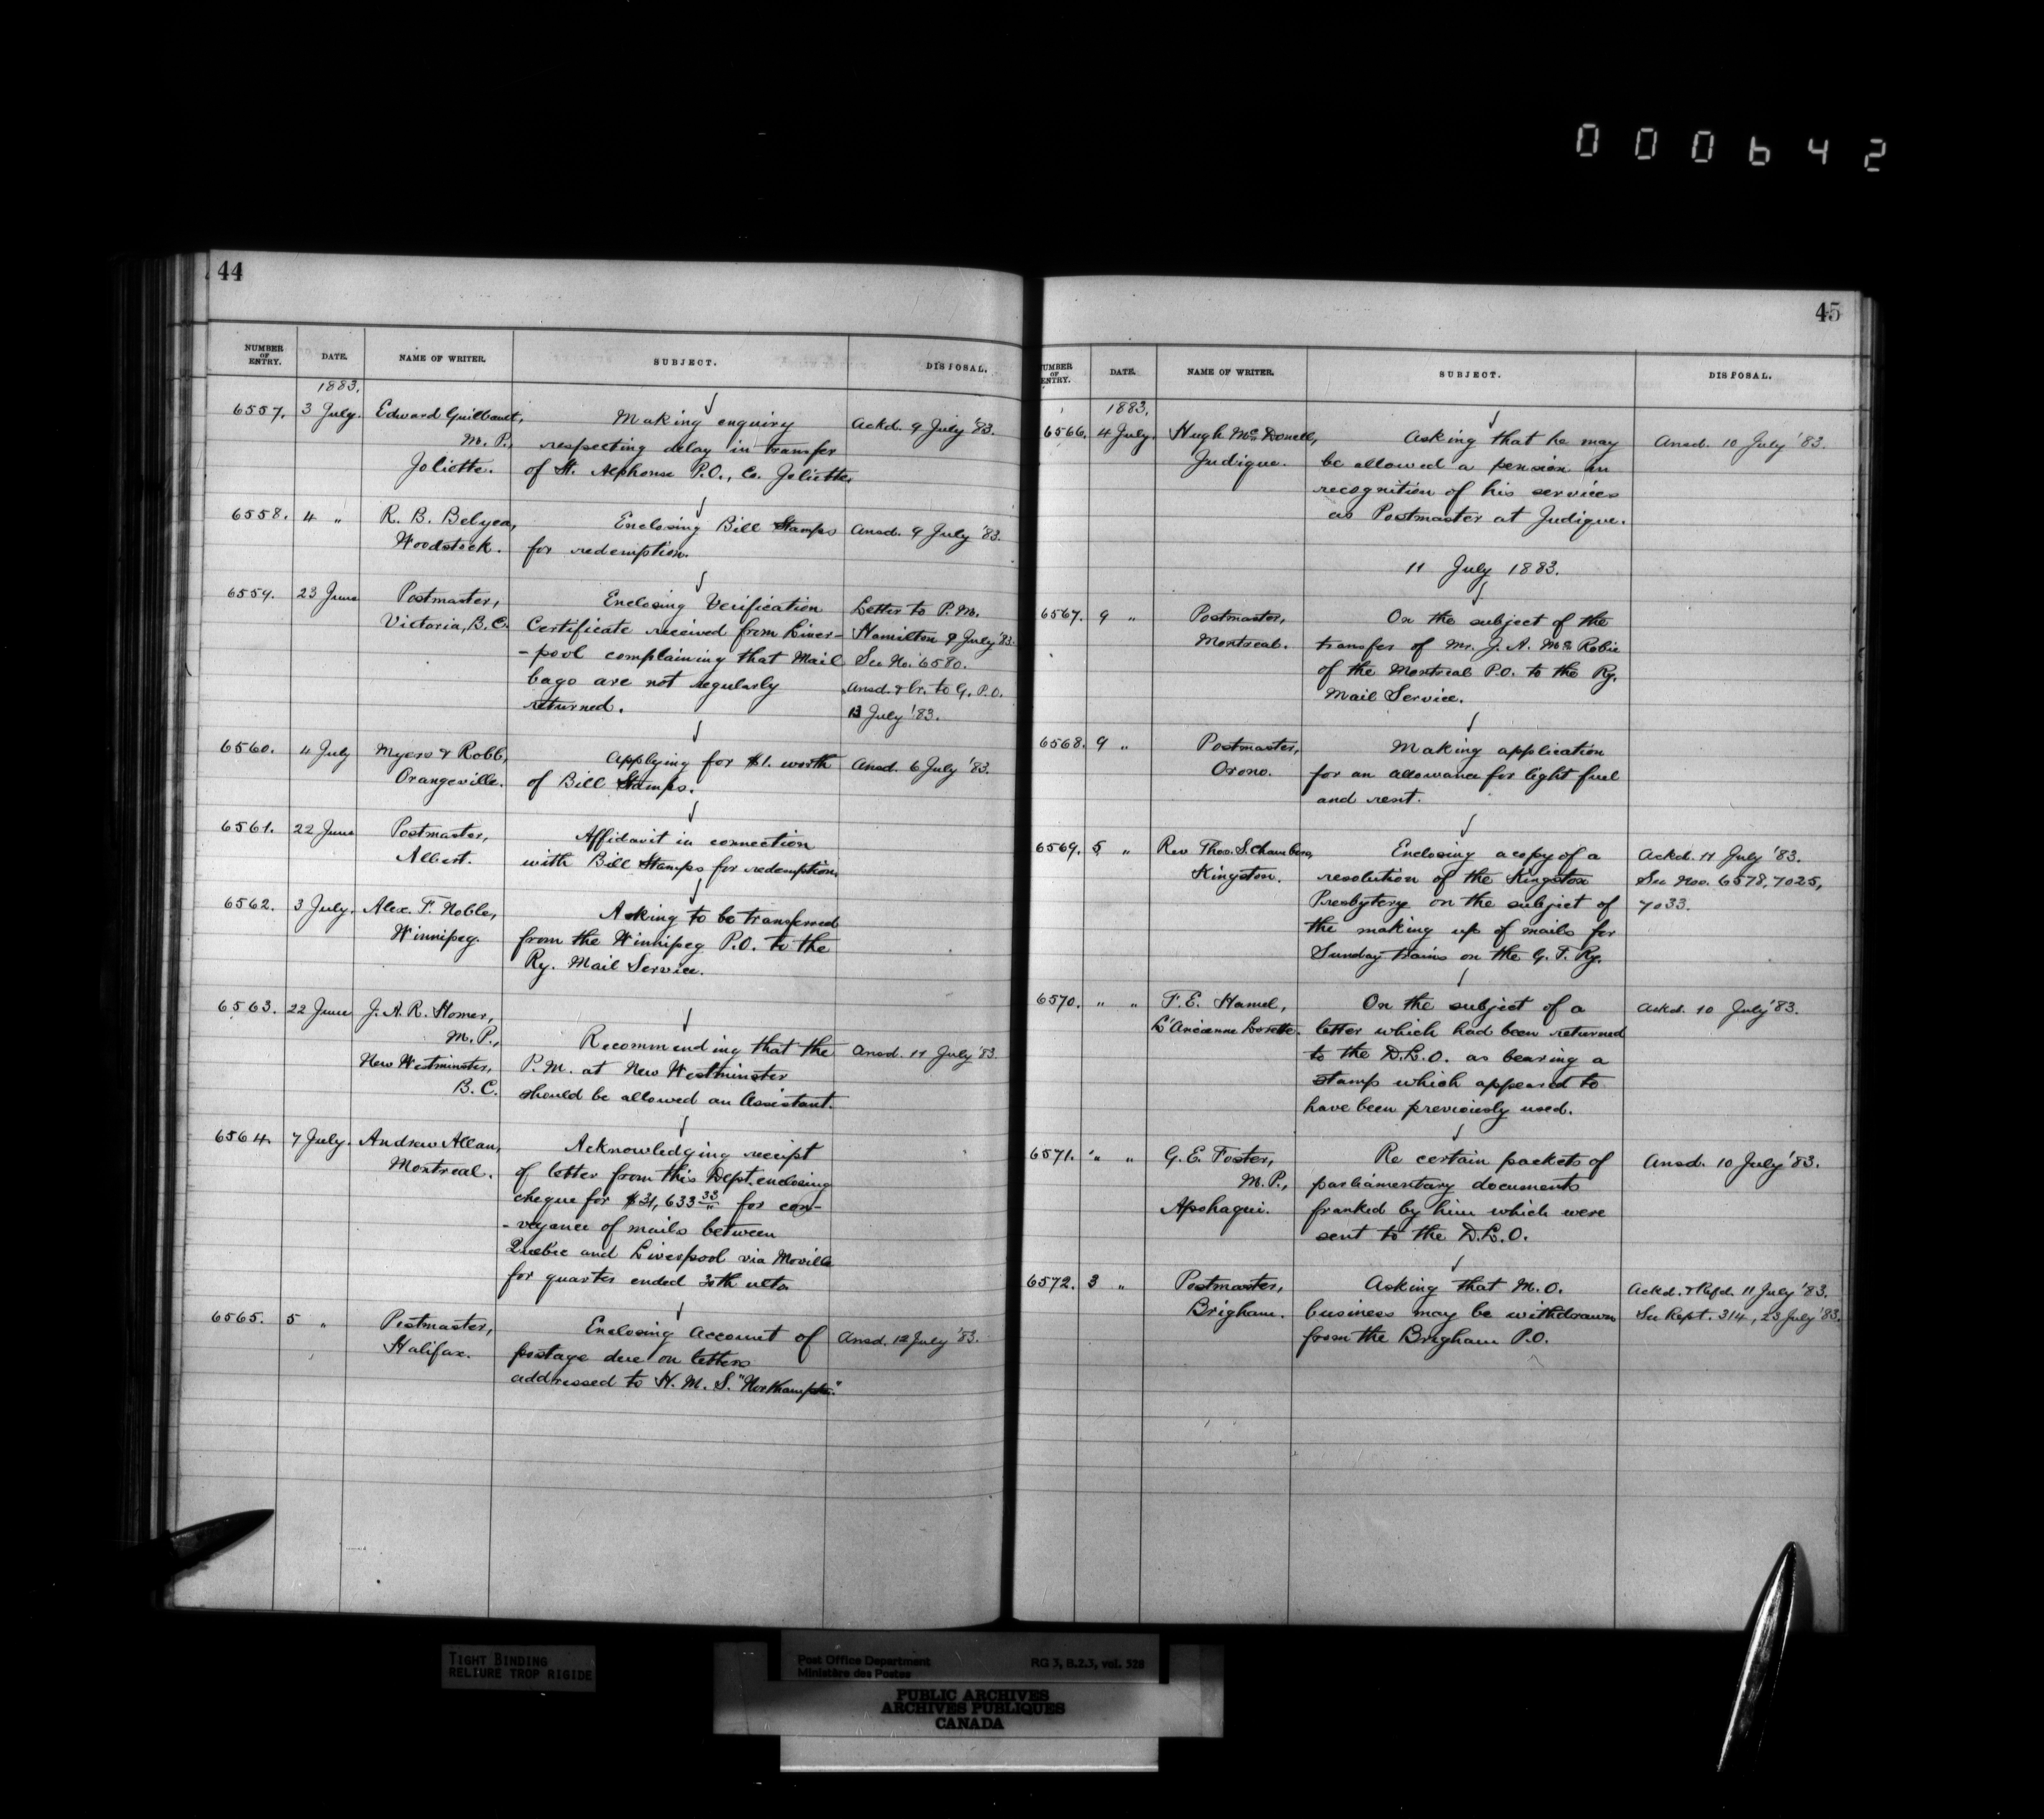 000642
44
NUMBER OF ENTRY. DATE. NAME OF WRITER. SUBJECT. DISPOSAL.
1883.
6557. 3 July. Edward Guilbault, Making enquiry Ackd. 9 July '83.
M. P., respecting delay in transfer
Joliette. of St. Alphonse P.O., Co. Joliette.
6558. 4 " R. B. Belyea, Enclosing Bill Stamps Ansd. 9 July '83.
Woodstock. for redemption.
6559. 23 June Postmaster, Enclosing Verification Letter to P. M.
Victoria, B.C. Certificate received from Liver- Hamilton 9 July '83.
-pool complaining that Mail See No. 6580.
bags are not regularly Ansd. & Cr. to G. P. O.
returned. 13 July '83.
6560. 4 July Myers & Robb, Applying for $1. worth Ansd. 6 July '83.
Orangeville. of Bill Stamps.
6561. 22 June Postmaster, Affidavit in connection
Albert. with Bill Stamps for redemption.
6562. 3 July. Alex. F. Noble, Asking to be transferred
Winnipeg. from the Winnipeg P.O. to the
Ry. Mail Service.
6563. 22 June J. A. R. Homer,
M. P., Recommending that the Ansd. 11 July '83.
New Westminster, P. M. at New Westminster
B. C. should be allowed an Assistant.
6564. 7 July. Andrew Allan, Acknowledging receipt
Montreal. of letter from this Dept. enclosing
cheque for $31,633 33 for con-
-veyance of mails between
Quebec and Liverpool via Moville
for quarter ended 30th ulto.
6565. 5 " Postmaster, Enclosing Account of Ansd. 12 July '83.
Halifax. postage due on letters
addressed to H. M. S. "Northampton."
45
NUMBER OF ENTRY. DATE. NAME OF WRITER. SUBJECT. DISPOSAL.
1883.
6566. 4 July. Hugh McDonell, Asking that he may Ansd. 10 July '83.
Judique. be allowed a pension in
recognition of his services
as Postmaster at Judique.
11 July 1883.
6567. 9 " Postmaster, On the subject of the
Montreal. transfer of Mr. J. A. McRobie
of the Montreal P.O. to the Ry.
Mail Service.
6568. 9 " Postmaster, Making application
Orono. for an allowance for light fuel
and rent.
6569. 5 " Rev Thos. S. Chambers, Enclosing a copy of a Ackd. 11 July '83.
Kingston. resolution of the Kingston See Nos. 6578, 7025,
Presbytery on the subject of 7033.
the making up of mails for
Sunday trains on the G. T. Ry.
6570. " " F. E. Hamel, On the subject of a Ackd. 10 July '83.
L'Ancienne Lorette. letter which had been returned
to the D.L.O. as bearing a
stamp which appeared to
have been previously used.
6571. " " G. E. Foster, Re certain packets of Ansd. 10 July '83.
M. P., parliamentary documents
Apohaqui. franked by him which were
sent to the D.L.O.
6572. 3 " Postmaster, Asking that M. O. Ackd. & Refd. 11 July '83.
Brigham. business may be withdrawn See Rept. 314, 23 July '83.
from the Brigham P.O.
TIGHT BINDING
RELIURE TROP RIGIDE
Post Office Department RG 3, B.2.3, vol. 528
Ministère des Postes
PUBLIC ARCHIVES
ARCHIVES PUBLIQUES
CANADA